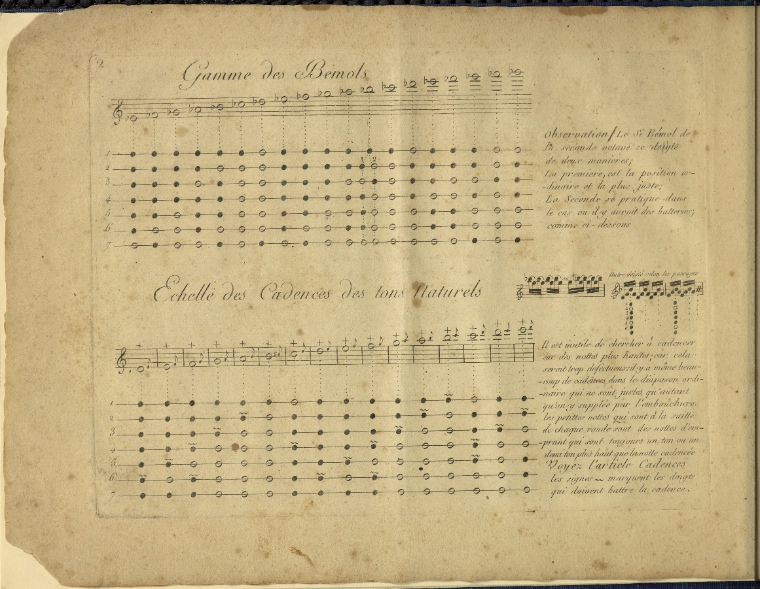 Gamme des Bémols
1
2
3
4
5
6
7
1 2
Observation / Le Si Bémol de
la seconde octave se doigte
de deux manieres;
La premiere, est la position or-
-dinaire et la plus juste;
La Seconde se pratique dans
le cas ou il y auroit des batteries;
comme ci-dessous
Echelle des Cadences des tons Naturels
Autre doigté selon les passages
1
2
3
4
5
6
7
Il est inutile de chercher à cadencer
sur des nottes plus hautes, car cela
seroit trop défectueux; il y a même beau-
-coup de cadences, dans le diapason ordi-
-naire qui ne sont justes qu'autant
qu'on y supplée par l'embouchure.
les petittes nottes qui sont à la suitte
de chaque ronde sont des nottes d'em-
prunt qui sont toujours un ton ou un
demi ton plus haut que la notte cadencée
Voyez l'article Cadences
les signes ~ marquent les doigts
qui doivent battre la cadence.